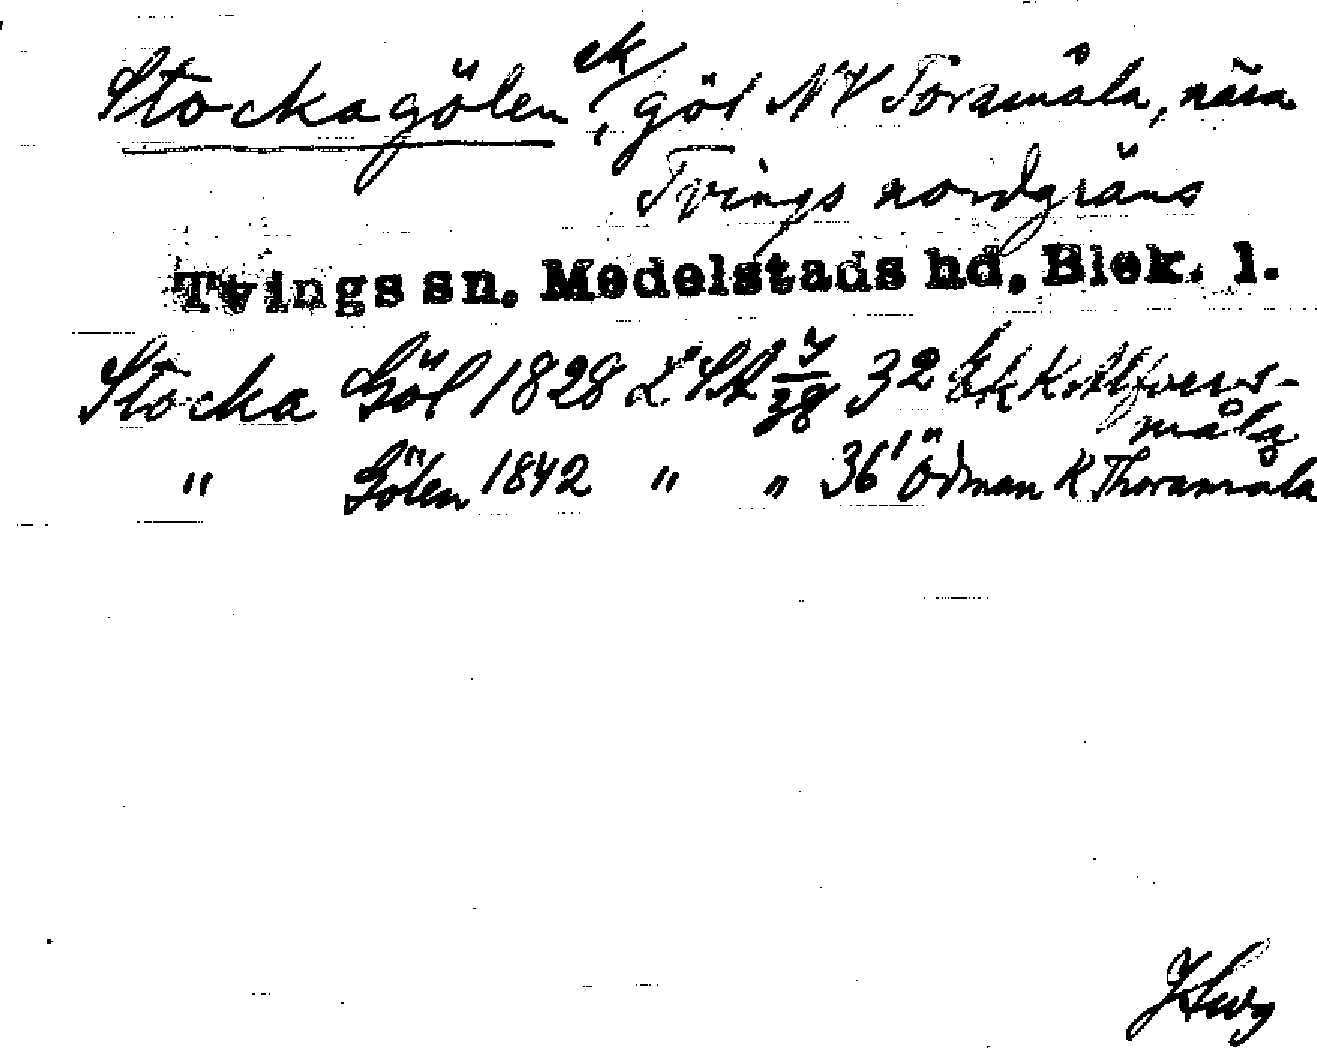 Stockagölen ek/, göl NV Toramåla, nära
Tvings nordgräns
Tvings sn. Medelstads hd. Blek. l.
Stocka Göl 1828 LSA 32 Ek K Alfvers-
måla
" Gölen 1842 " " 36 Ödman K Thoramåla